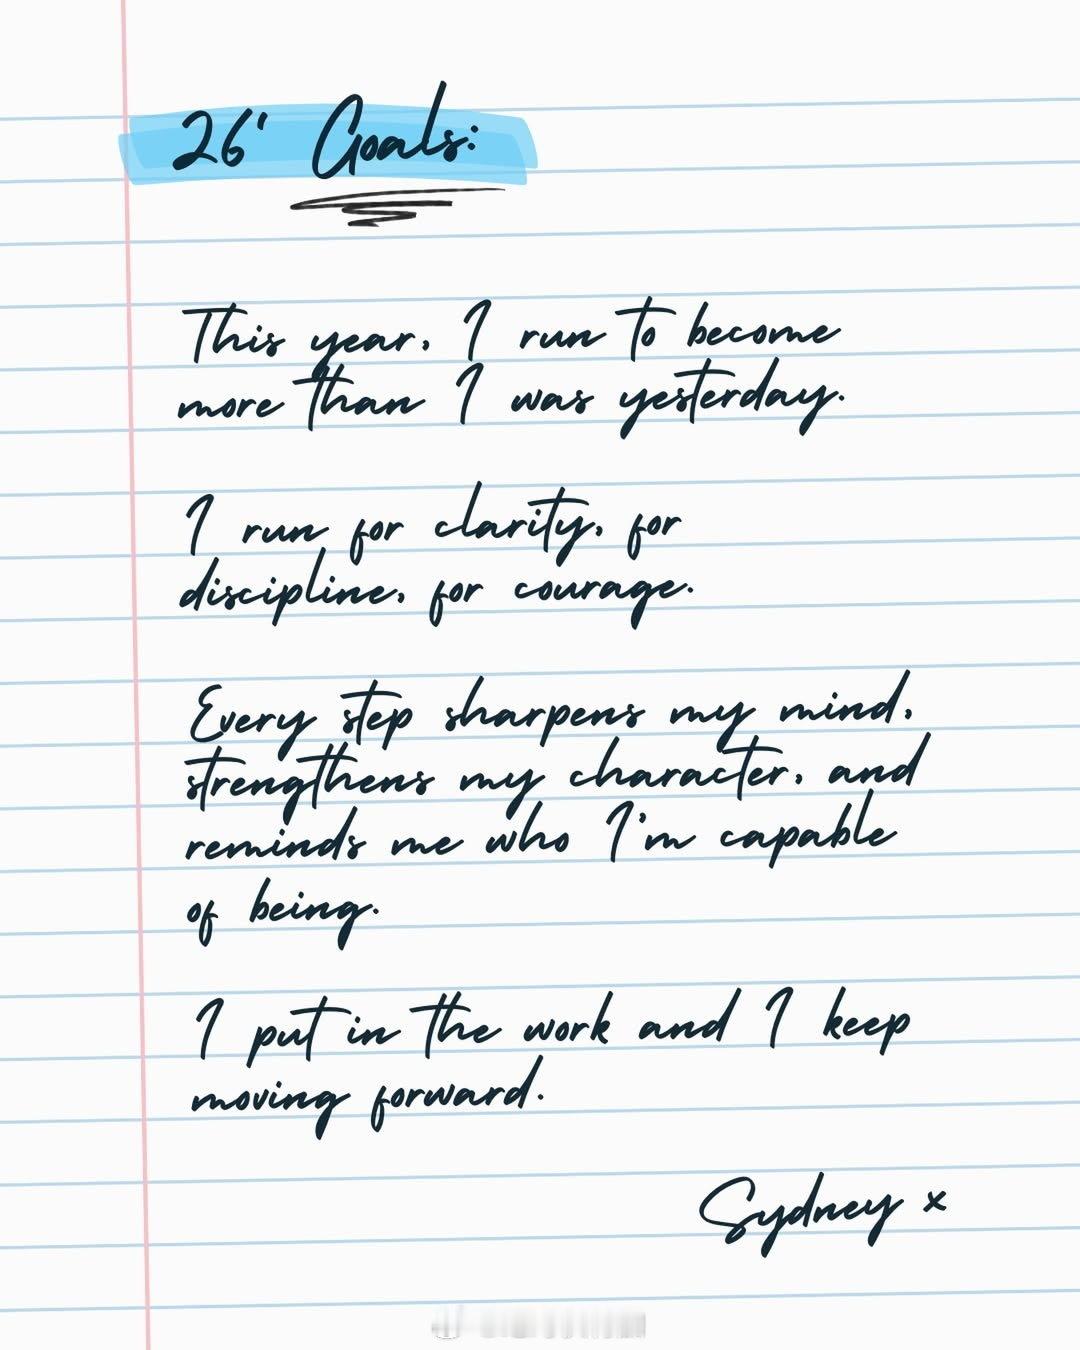 26' Goals:
This year, I run to become
more than I was yesterday.
I run for clarity, for
discipline, for courage.
Every step sharpens my mind,
strengthens my character, and
reminds me who I'm capable
of being.
I put in the work and I keep
moving forward.
Sydney x